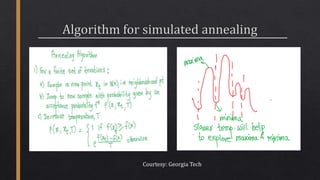 Algorithm for simulated annealing
Annealing Algorithm
1) For a finite set of iterations:
a) Sample new point xₜ in N(x), i.e. neighbourhood pt
b) Jump to new sample with probability given by an
acceptance probability fⁿ P(x, xₜ, T)
c) Decrease temperature, T
P(x, xₜ, T) = { 1 if f(xₜ) ≥ f(x)
e^(f(xₜ)-f(x))/T otherwise
maxima
minima
slower temp will help
to explore maxima & minima
Courtesy: Georgia Tech